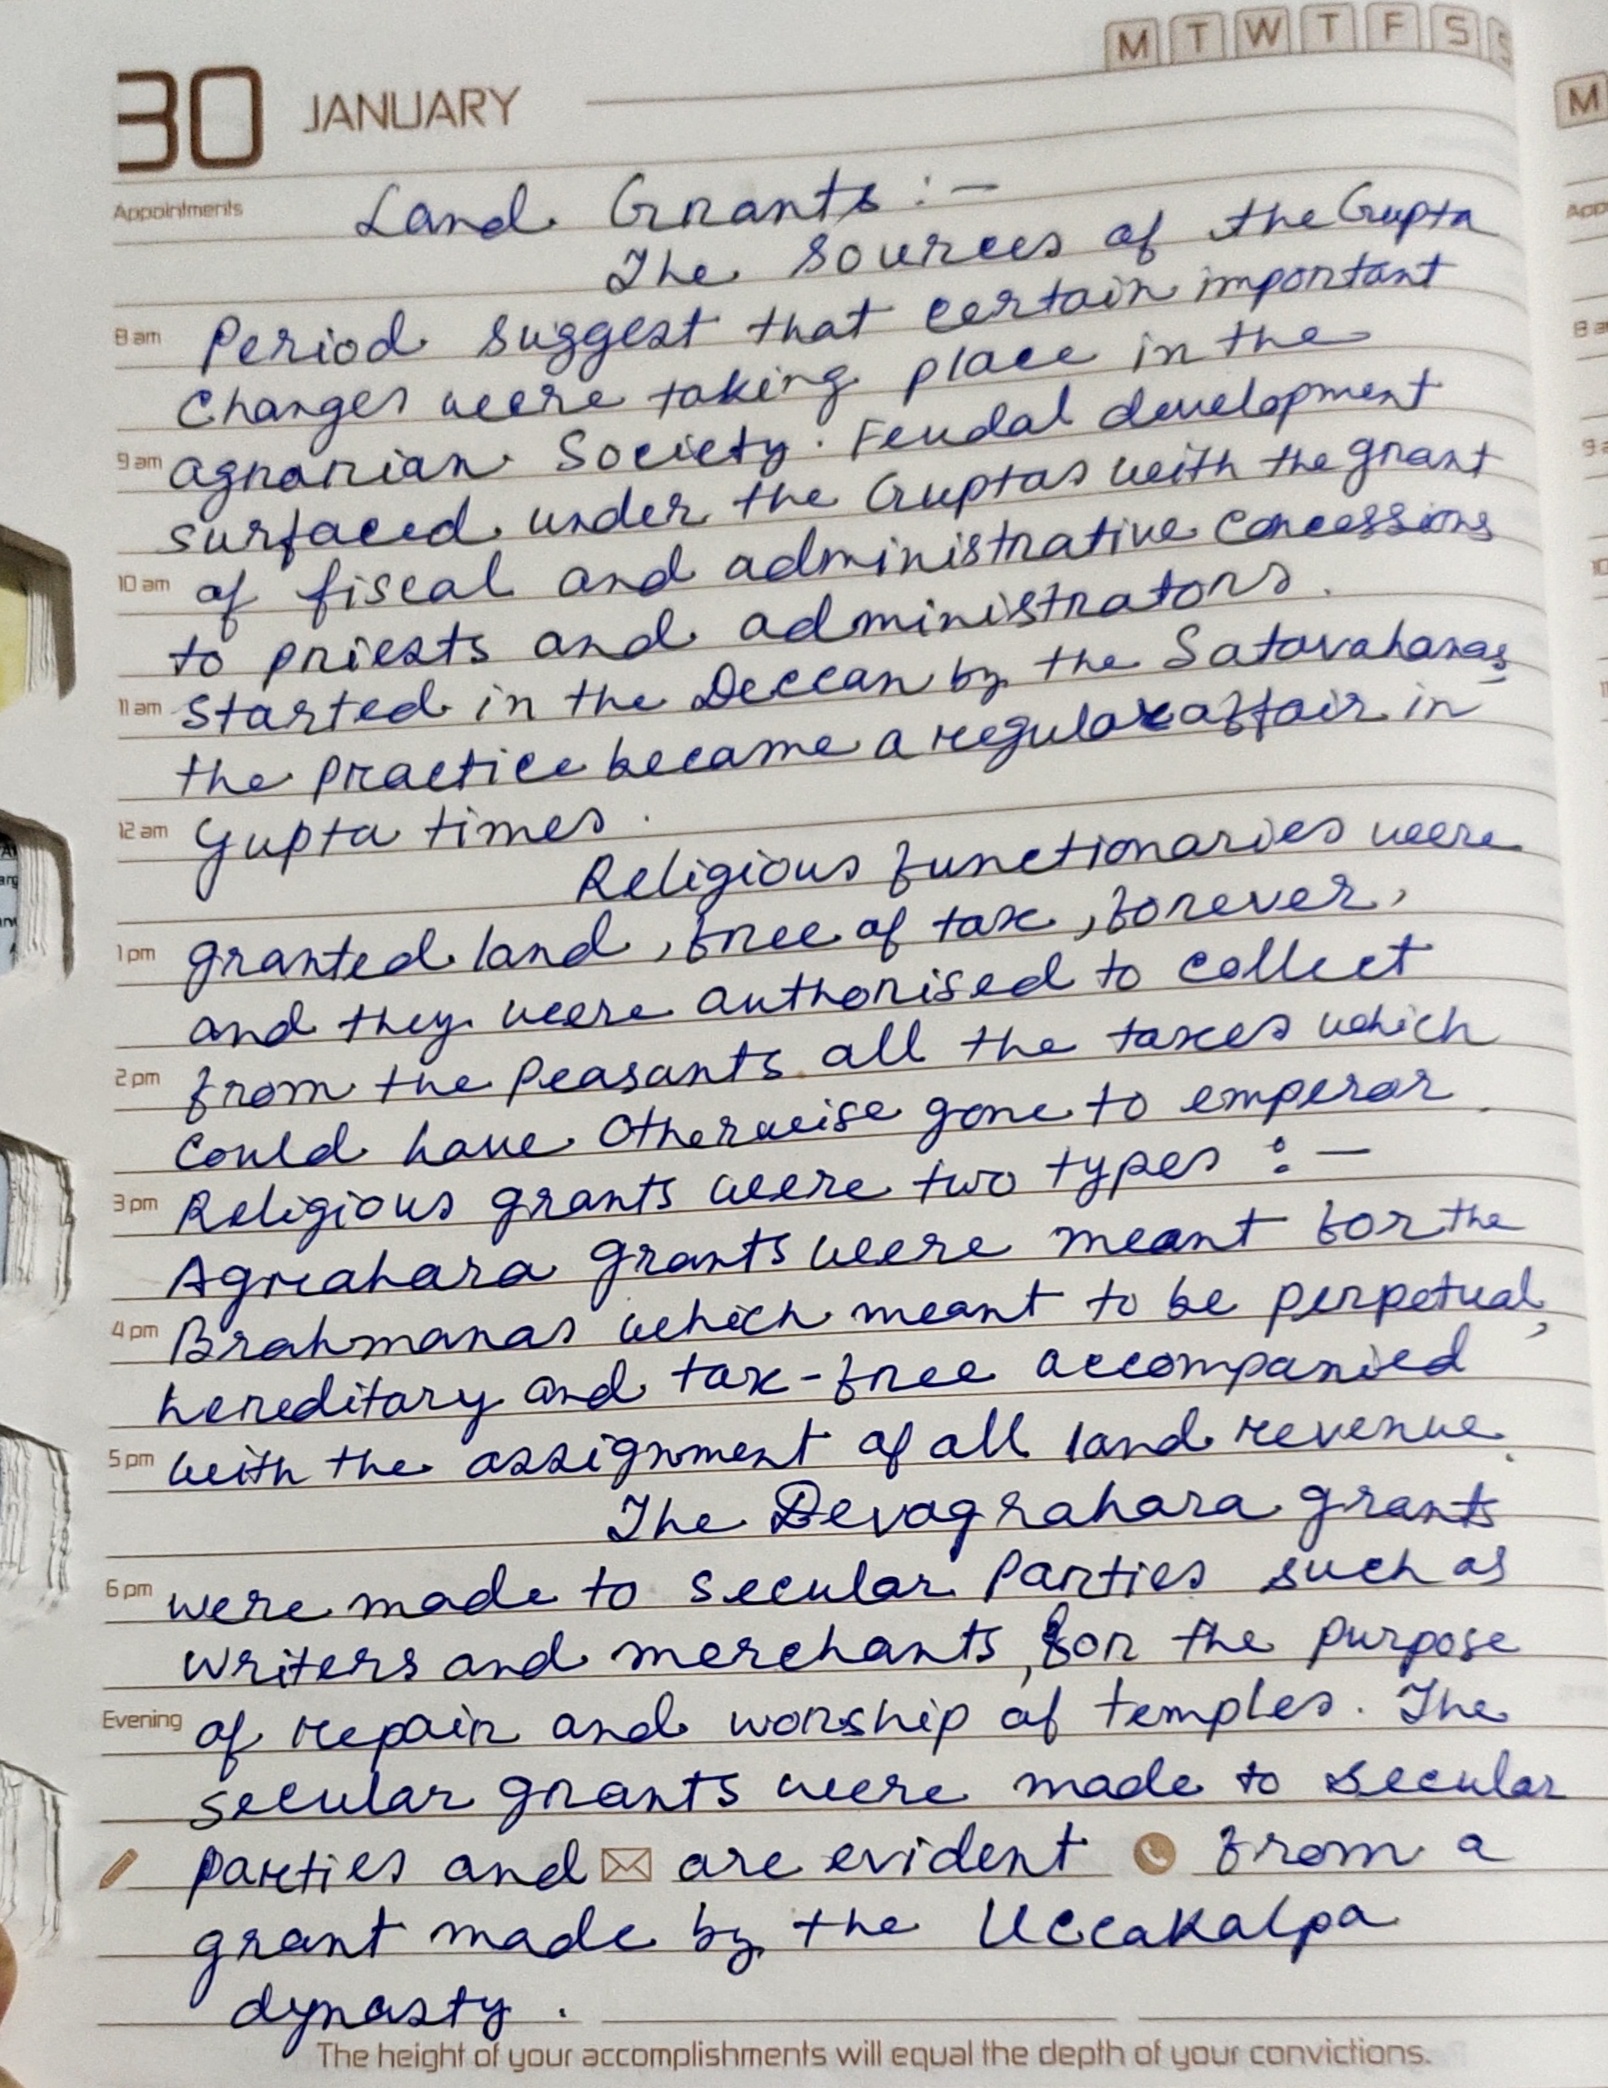 M T W T F S S
30 JANUARY
M
Appointments
Land Grants :-
The Sources of the Gupta
8 am Period suggest that certain important
Changes were taking place in the
9 am agrarian Society. Feudal development
surfaced under the Guptas with the grant
10 am of fiscal and administrative concessions
to priests and administrators.
11 am Started in the Deccan by the Satavahanas,
the practice became a regular affair in
12 am Gupta times.
Religious functionaries were
1 pm granted land, free of tax, forever,
and they were authorised to collect
2 pm from the peasants all the taxes which
Could have Otherwise gone to emperor.
3 pm Religious grants were two types :-
Agrahara grants were meant for the
4 pm Brahmanas which meant to be perpetual,
hereditary and tax-free accompanied
5 pm with the assignment of all land revenue.
The Devagrahara grants
6 pm were made to secular Parties such as
writers and merchants, for the purpose
Evening of repair and worship of temples. The
secular grants were made to secular
parties and are evident from a
grant made by the Uccakalpa
dynasty.
The height of your accomplishments will equal the depth of your convictions.